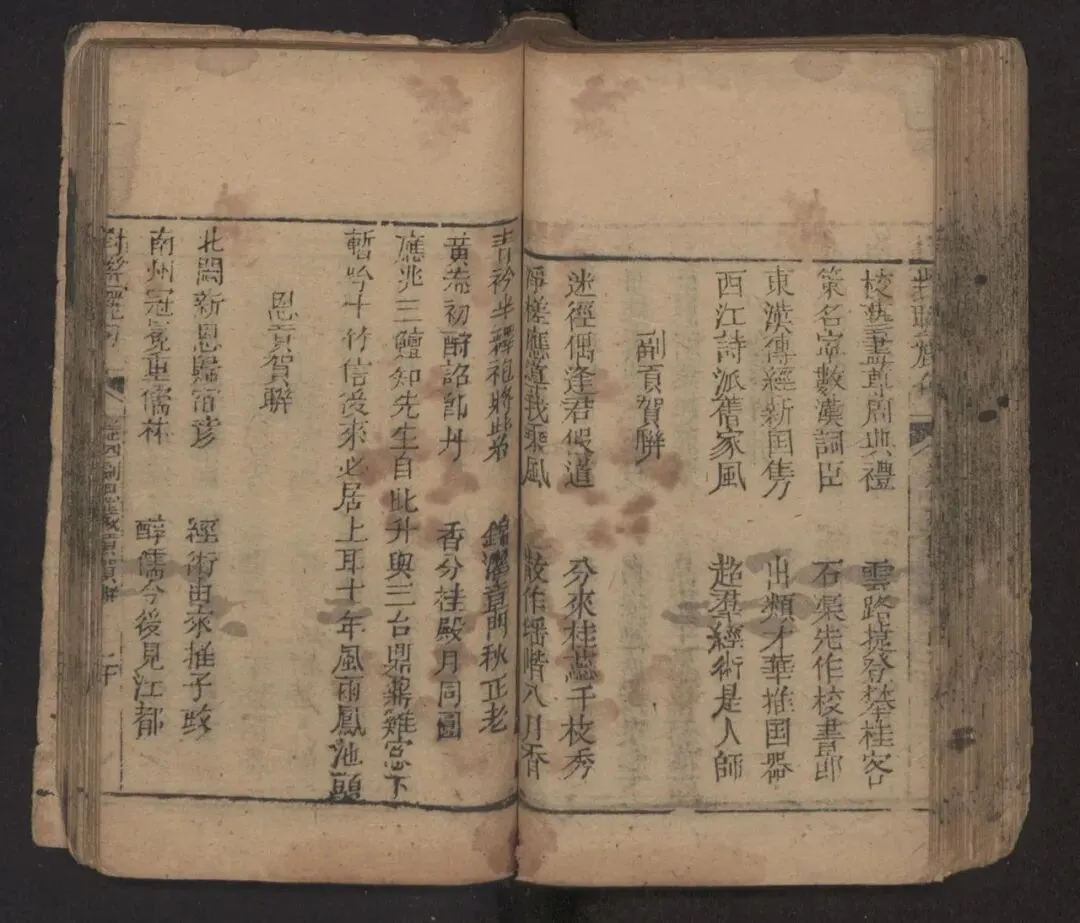 校書尊周典禮 雲路捷登攀桂客
策名寧數漢詞臣 石渠先作校書郎
東漢傳經新国雋 出類才華推国器
西江詩派舊家風 超羣經術是人師
副貢賀聨
迷徑偶逢君假道 分來桂蕊千枝秀
乘風 散作堦八月香
青衿半釋袍將紫 錦瀾章門秋正老
黃初酧詔郎丹 香分桂殿月同圓
應兆三鱣知先生自此升與三台鼎鼐難寃下
暫吟十竹信後來必居上耳十年風雨鳳池頭
恩貢賀聨
北闕新恩歸宿彦 經術由來推子政
南州冠冕重儒林 醇儒今後見江都